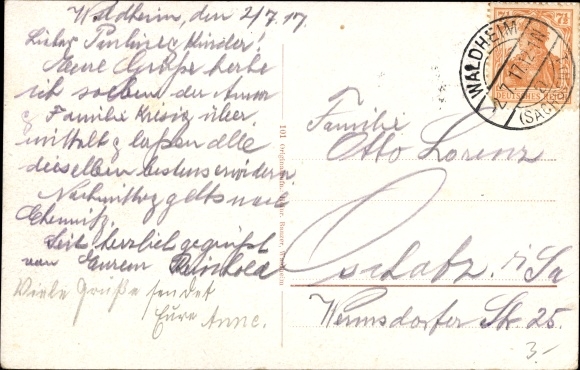 Waldheim, den 2/7.17.
Liebe Kinder!
Eure Grüße habe
ich soeben der Anna
& Familie über
mittelt & laßen alle
dieselben bestens erwidern.
Nachmittag gehts nach
Chemnitz.
Seit herzlich gegrüßt
von Eurem Reinhold
Viele Grüße sendet
Eure Anne.
Familie
Otto Lorenz
Oschatz. i/Sa
Wermsdorfer Str. 25.
WALDHEIM
2.7.17.
(SACHSEN)
7½
DEUTSCHES REICH
3.-